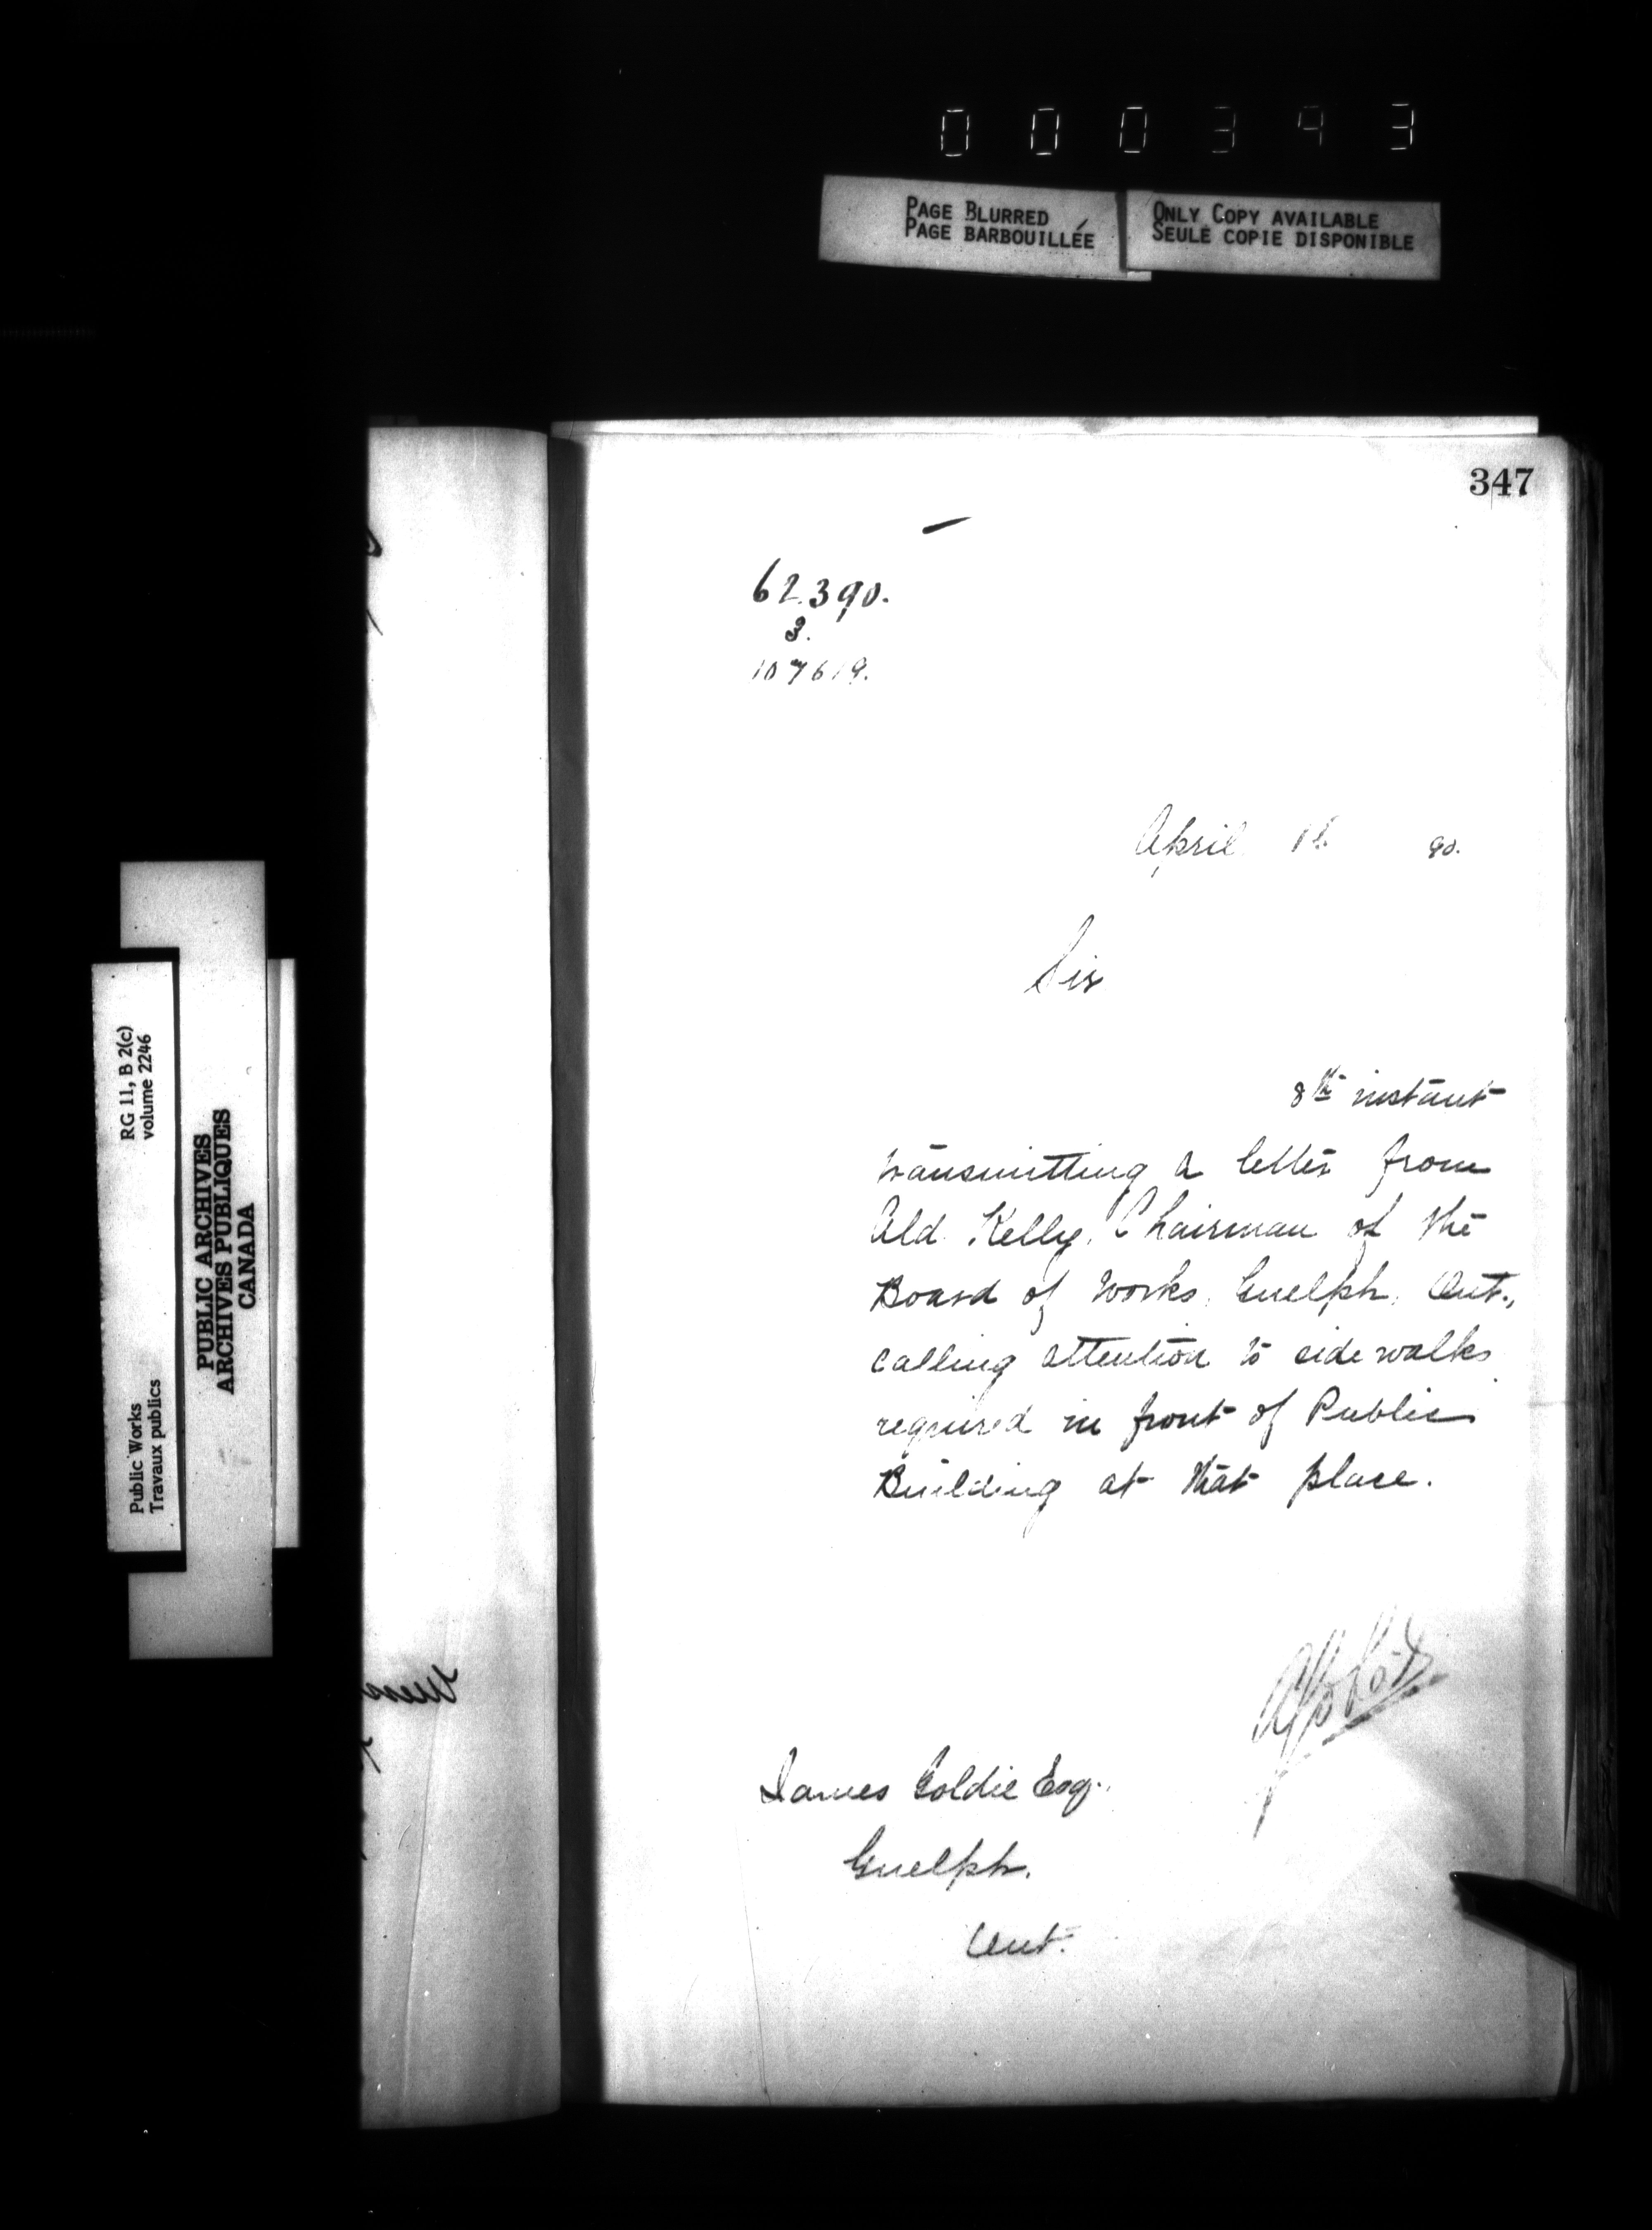 000343
PAGE BLURRED
PAGE BARBOUILLÉE
ONLY COPY AVAILABLE
SEULE COPIE DISPONIBLE
347
62.390.
3.
107619.
April 90.
Sir
8th instant
transmitting a letter from
Ald. Kelly, Chairman of the
Board of Works, Guelph, Ont.,
calling attention to sidewalks
required in front of Public
Building at that place.
James Goldie Esq.
Guelph.
Ont.
RG 11, B 2(c)
volume 2246
Public Works
Travaux publics
PUBLIC ARCHIVES
ARCHIVES PUBLIQUES
CANADA